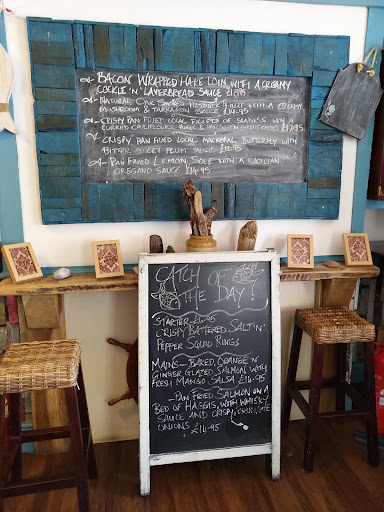 BACON WRAPPED HAKE LOIN WITH A CREAMY
COCKLE 'N' LAVERBREAD SAUCE
NATURAL OAK SMOKED HADDOCK FILLET WITH A CREAMY
MUSHROOM & TARRAGON SAUCE
CRISPY PAN FRIED LOCAL FILLETS OF SEABASS WITH A
CURRIED CAULIFLOWER PUREE & £17.95
CRISPY PAN FRIED LOCAL MACKEREL BUTTERFLY WITH
BITTER SWEET PLUM SAUCE
PAN FRIED LEMON SOLE WITH A SICILIAN
OREGANO SAUCE £16.95
CATCH OF
THE DAY!
STARTER £6.95
CRISPY BATTERED SALT 'N'
PEPPER SQUID RINGS
MAINS - BAKED ORANGE 'N'
GINGER GLAZED SALMON WITH
FRESH MANGO SALSA £16.95
- PAN FRIED SALMON ON A
BED OF HAGGIS, WITH WHISKY
SAUCE AND CRISPY
ONIONS £16.95